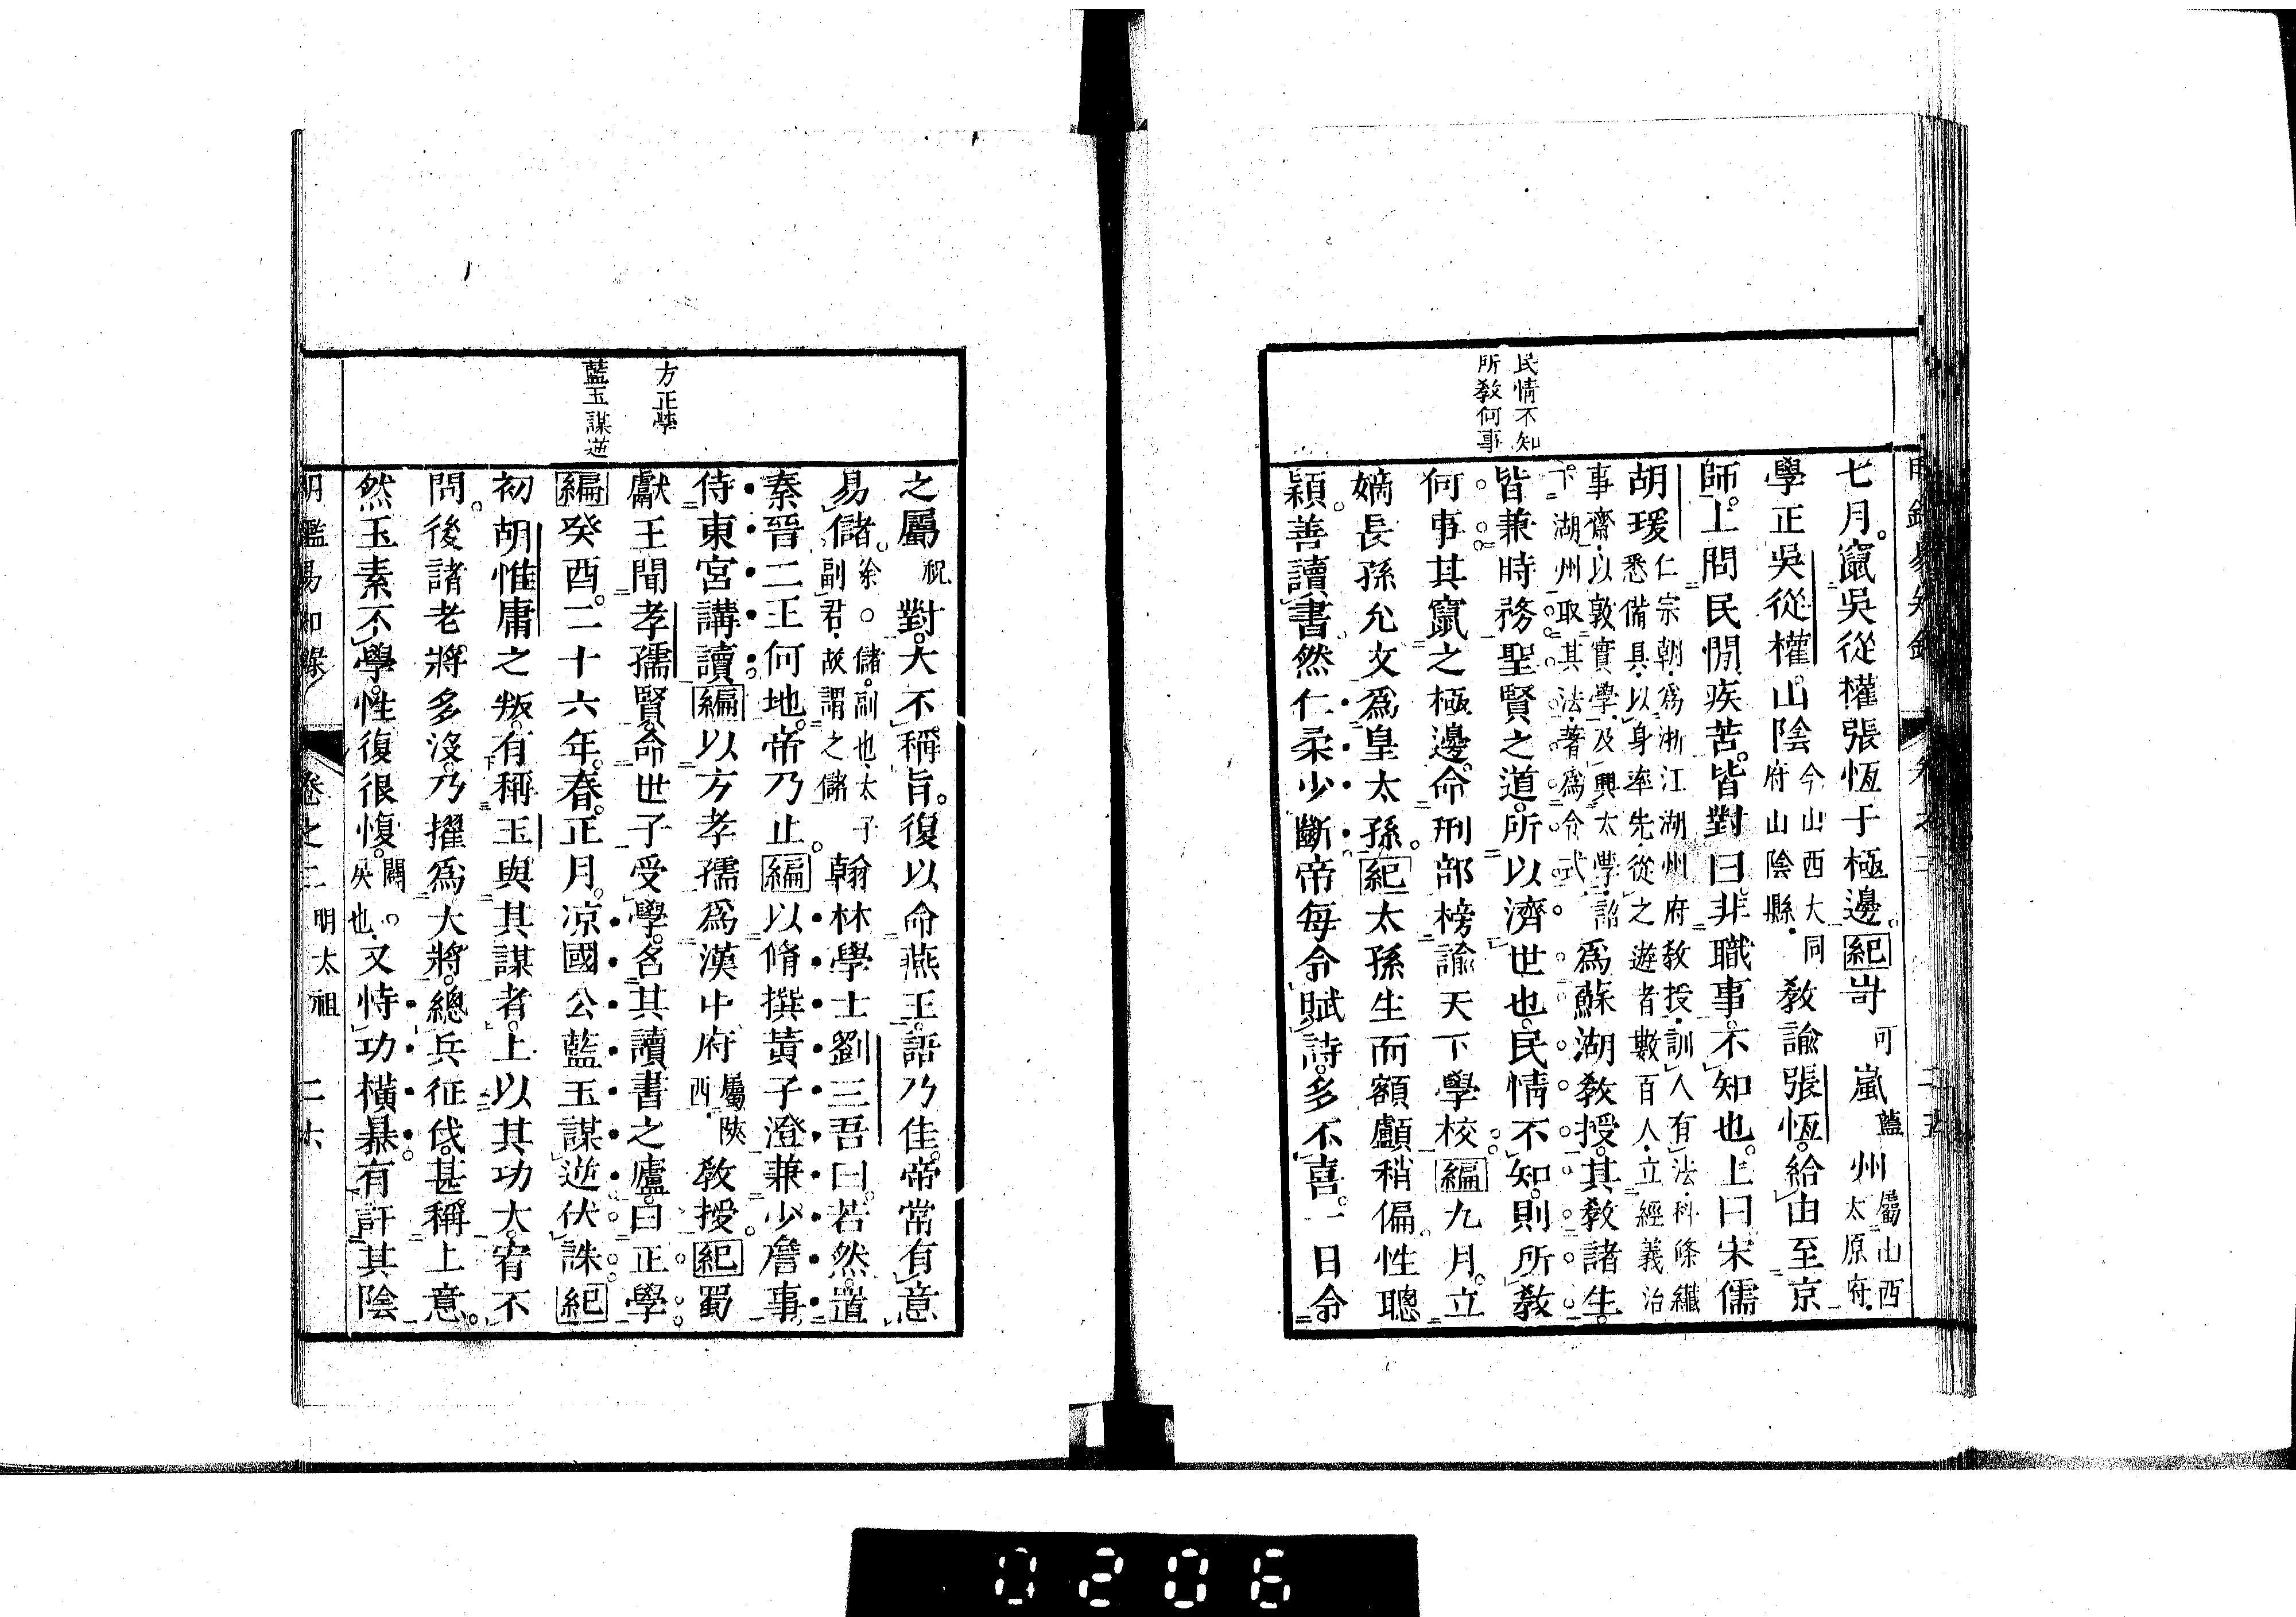 民情不知
所教何事
七月竄吳從權張恆于極邊紀岢可嵐藍州屬山西太原府
學正吳從權山陰今山西大同府山陰縣教諭張恆給由至京
師上問民閒疾苦皆對曰非職事不知也上曰宋儒
胡瑗仁宗朝爲浙江湖州府教授訓人有法科條纖悉備具以身率先從之遊者數百人立經義治
事齋以敦實學及興太學詔下湖州取其法著爲令式爲蘇湖教授其教諸生
皆兼時務聖賢之道所以濟世也民情不知則所教
何事其竄之極邊命刑部榜諭天下學校編九月立
嫡長孫允炆爲皇太孫紀太孫生而額顱稍偏性聰
穎善讀書然仁柔少斷帝每令賦詩多不喜一日令
方正學
藍玉謀逆
之屬祝對大不稱旨復以命燕王語乃佳帝常有意
易儲徐儲副也太子副君故謂之儲翰林學士劉三吾曰若然置
秦晉二王何地帝乃止編以脩撰黃子澄兼少詹事
侍東宮講讀編以方孝孺爲漢中府屬陝西教授紀蜀
獻王聞孝孺賢命世子受學名其讀書之廬曰正學
編癸酉二十六年春正月凉國公藍玉謀逆伏誅紀
初胡惟庸之叛有稱玉與其謀者上以其功大宥不
問後諸老將多沒乃擢爲大將總兵征伐甚稱上意
然玉素不學性復很愎又恃功橫暴有訐其陰
明鑑易知錄
卷之二
明太祖
二六
0206